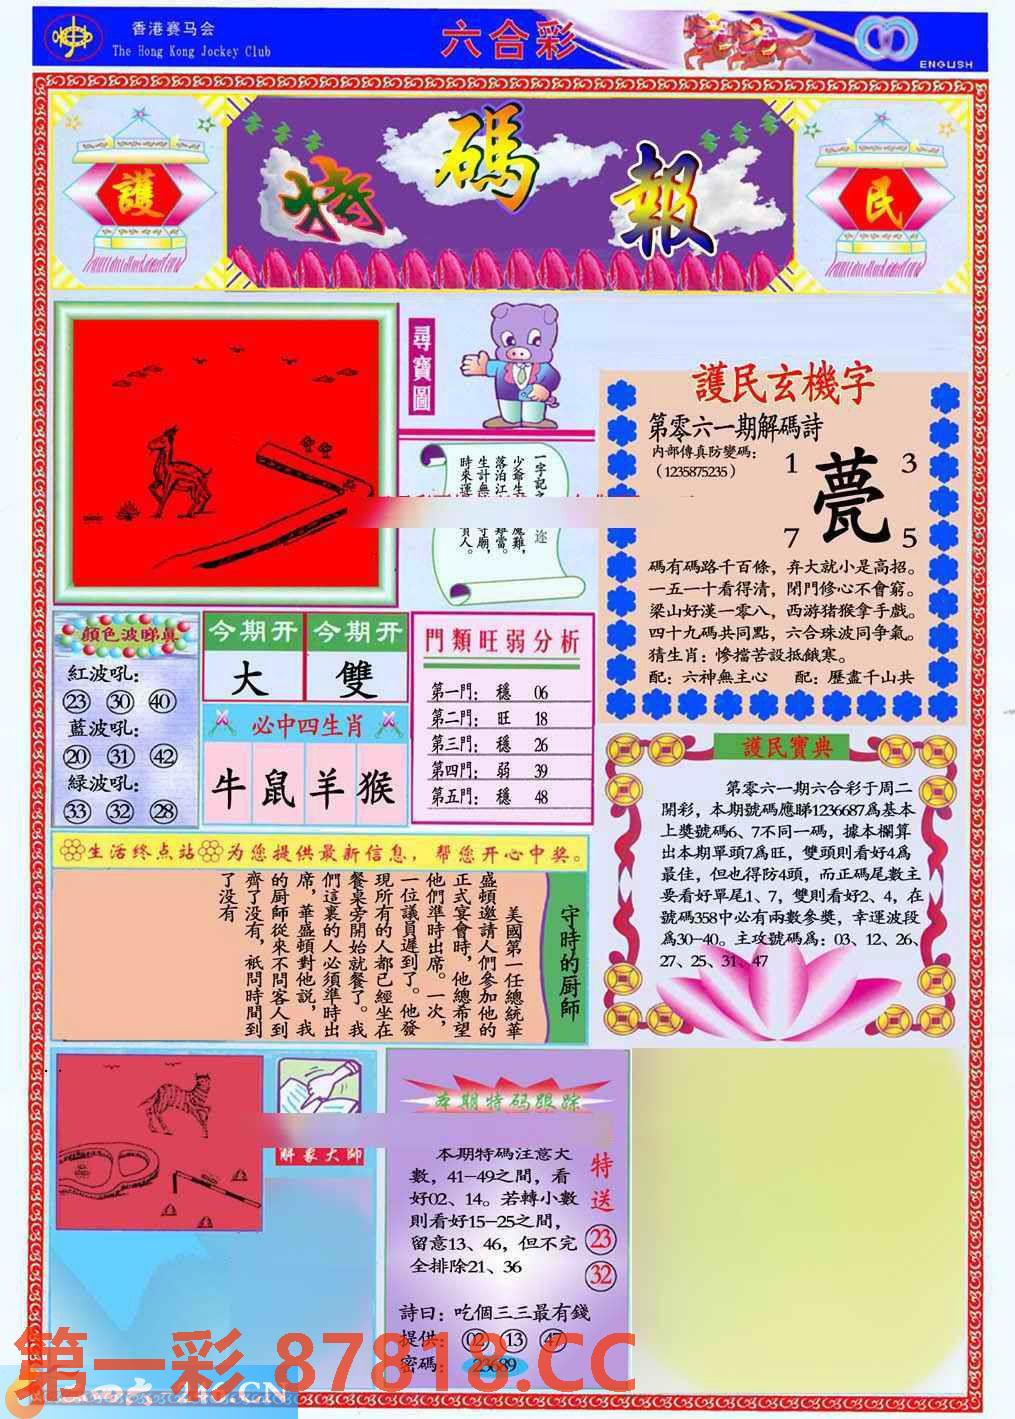 香港赛马会
The Hong Kong Jockey Club
六合彩
ENGLISH
護
特碼報
民
尋寶圖
一字記之
迩
少爺生
魔難，
落泊江
難當。
生計無
守廟，
時來運
貴人。
護民玄機字
第零六一期解碼詩
内部傳真防變碼：
（1235875235）
1
3
甍
7
5
碼有碼路千百條，弃大就小是高招。
一五一十看得清，閉門修心不會窮。
梁山好漢一零八，西游猪猴拿手戲。
四十九碼共同點，六合珠波同争氣。
猜生肖：慘擋苦設抵餓寒。
配：六神無主心 配：歷盡千山共
顔色波睇真
紅波吼：
23 30 40
藍波吼：
20 31 42
緑波吼：
33 32 28
今期開 今期開
大 雙
必中四生肖
牛 鼠 羊 猴
門類旺弱分析
第一門： 穩 06
第二門： 旺 18
第三門： 穩 26
第四門： 弱 39
第五門： 穩 48
護民寶典
第零六一期六合彩于周二
開彩，本期號碼應睇1236687爲基本
上獎號碼6、7不同一碼，據本欄算
出本期單頭7爲旺，雙頭則看好4爲
最佳，但也得防4頭，而正碼尾數主
要看好單尾1、7，雙則看好2、4，在
號碼358中必有兩數參獎，幸運波段
爲30-40。主攻號碼爲：03、12、26、
27、25、31、47
生活终点站 为您提供最新信息，帮您开心中奖。
守時的厨師
美國第一任總統華
盛頓邀請人們參加他的
正式宴會時，他總希望
他們準時出席。一次，
一位議員遲到了。他發
現所有的人都已經坐在
餐桌旁開始就餐了。我
們這裏的人必須準時出
席，華盛頓對他説，我
的厨師從來不問客人到
齊了没有，衹問時間到
了没有
解象大師
本期特码跟踪
本期特碼注意大
數，41-49之間，看
好02、14。若轉小數
則看好15-25之間，
留意13、46，但不完
全排除21、36
特送
23
32
詩曰：吃個三三最有錢
提供：02 13 47
密碼：23689
第一彩 87818.CC
四六 446.CN